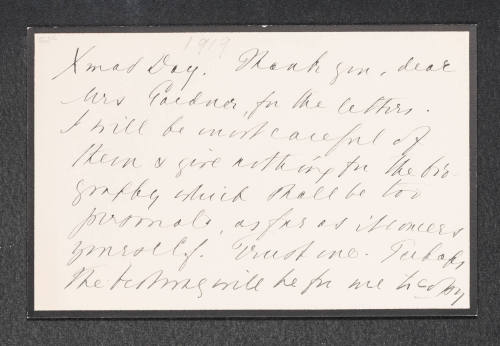 1919
Xmas Day. Thank you, dear
Mrs Gardner, for the letters.
I will be most careful of
them & give nothing for the bio-
graphy which shall be too
personal, as far as it concerns
yourself. Trust me. Perhaps
the best way will be for me to copy